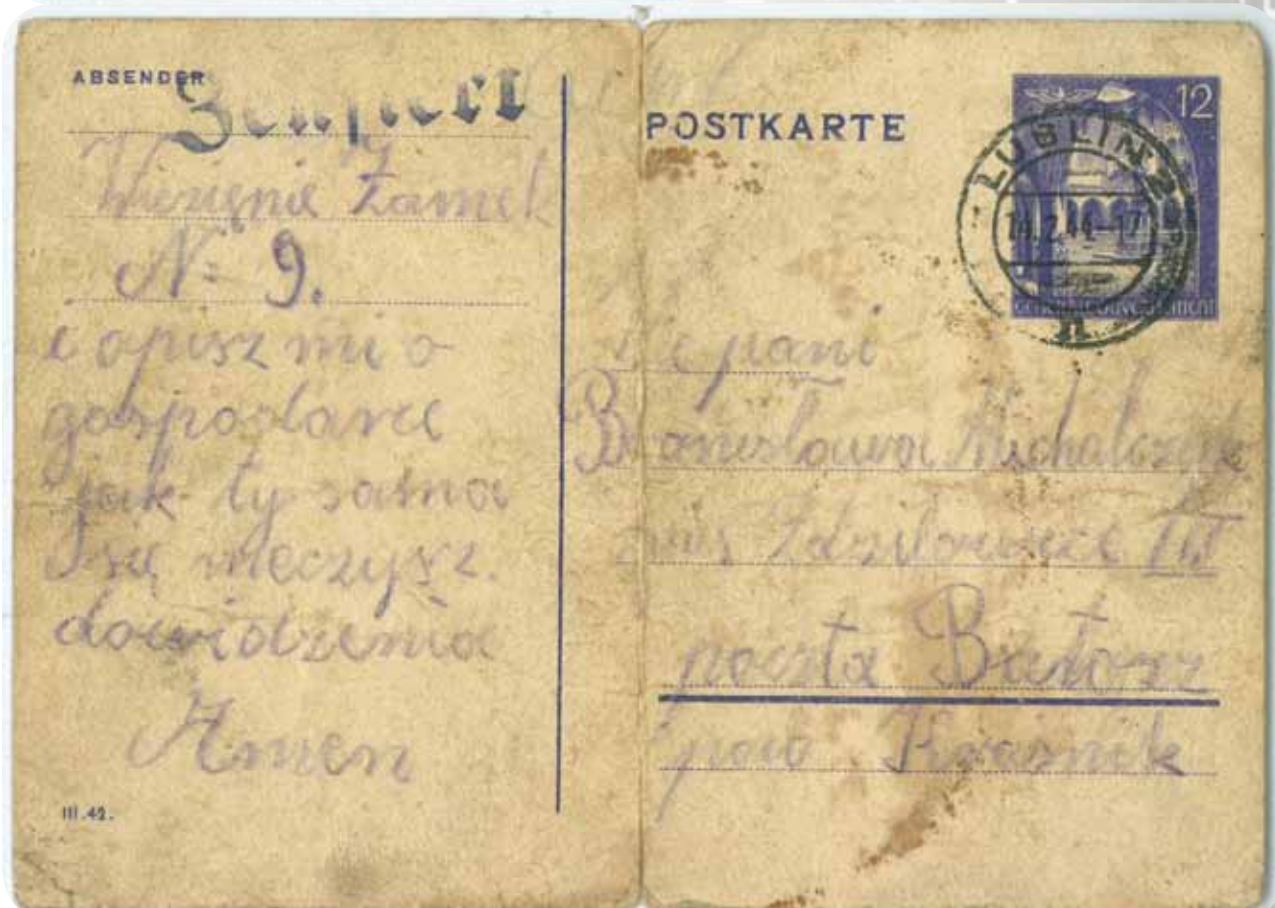 ABSENDER
Zensiert
Więzienie Zamek
N= 9.
i opisz mi o
gospodarce
jak ty sama
się męczysz.
dowidzenia
Amen
III.42.
POSTKARTE
12
LUBLIN 2
14.2.44-17
n
pani
Bronisława Michalczyk
Zdziłowice III
poczta Batorz
pow Kraśnik